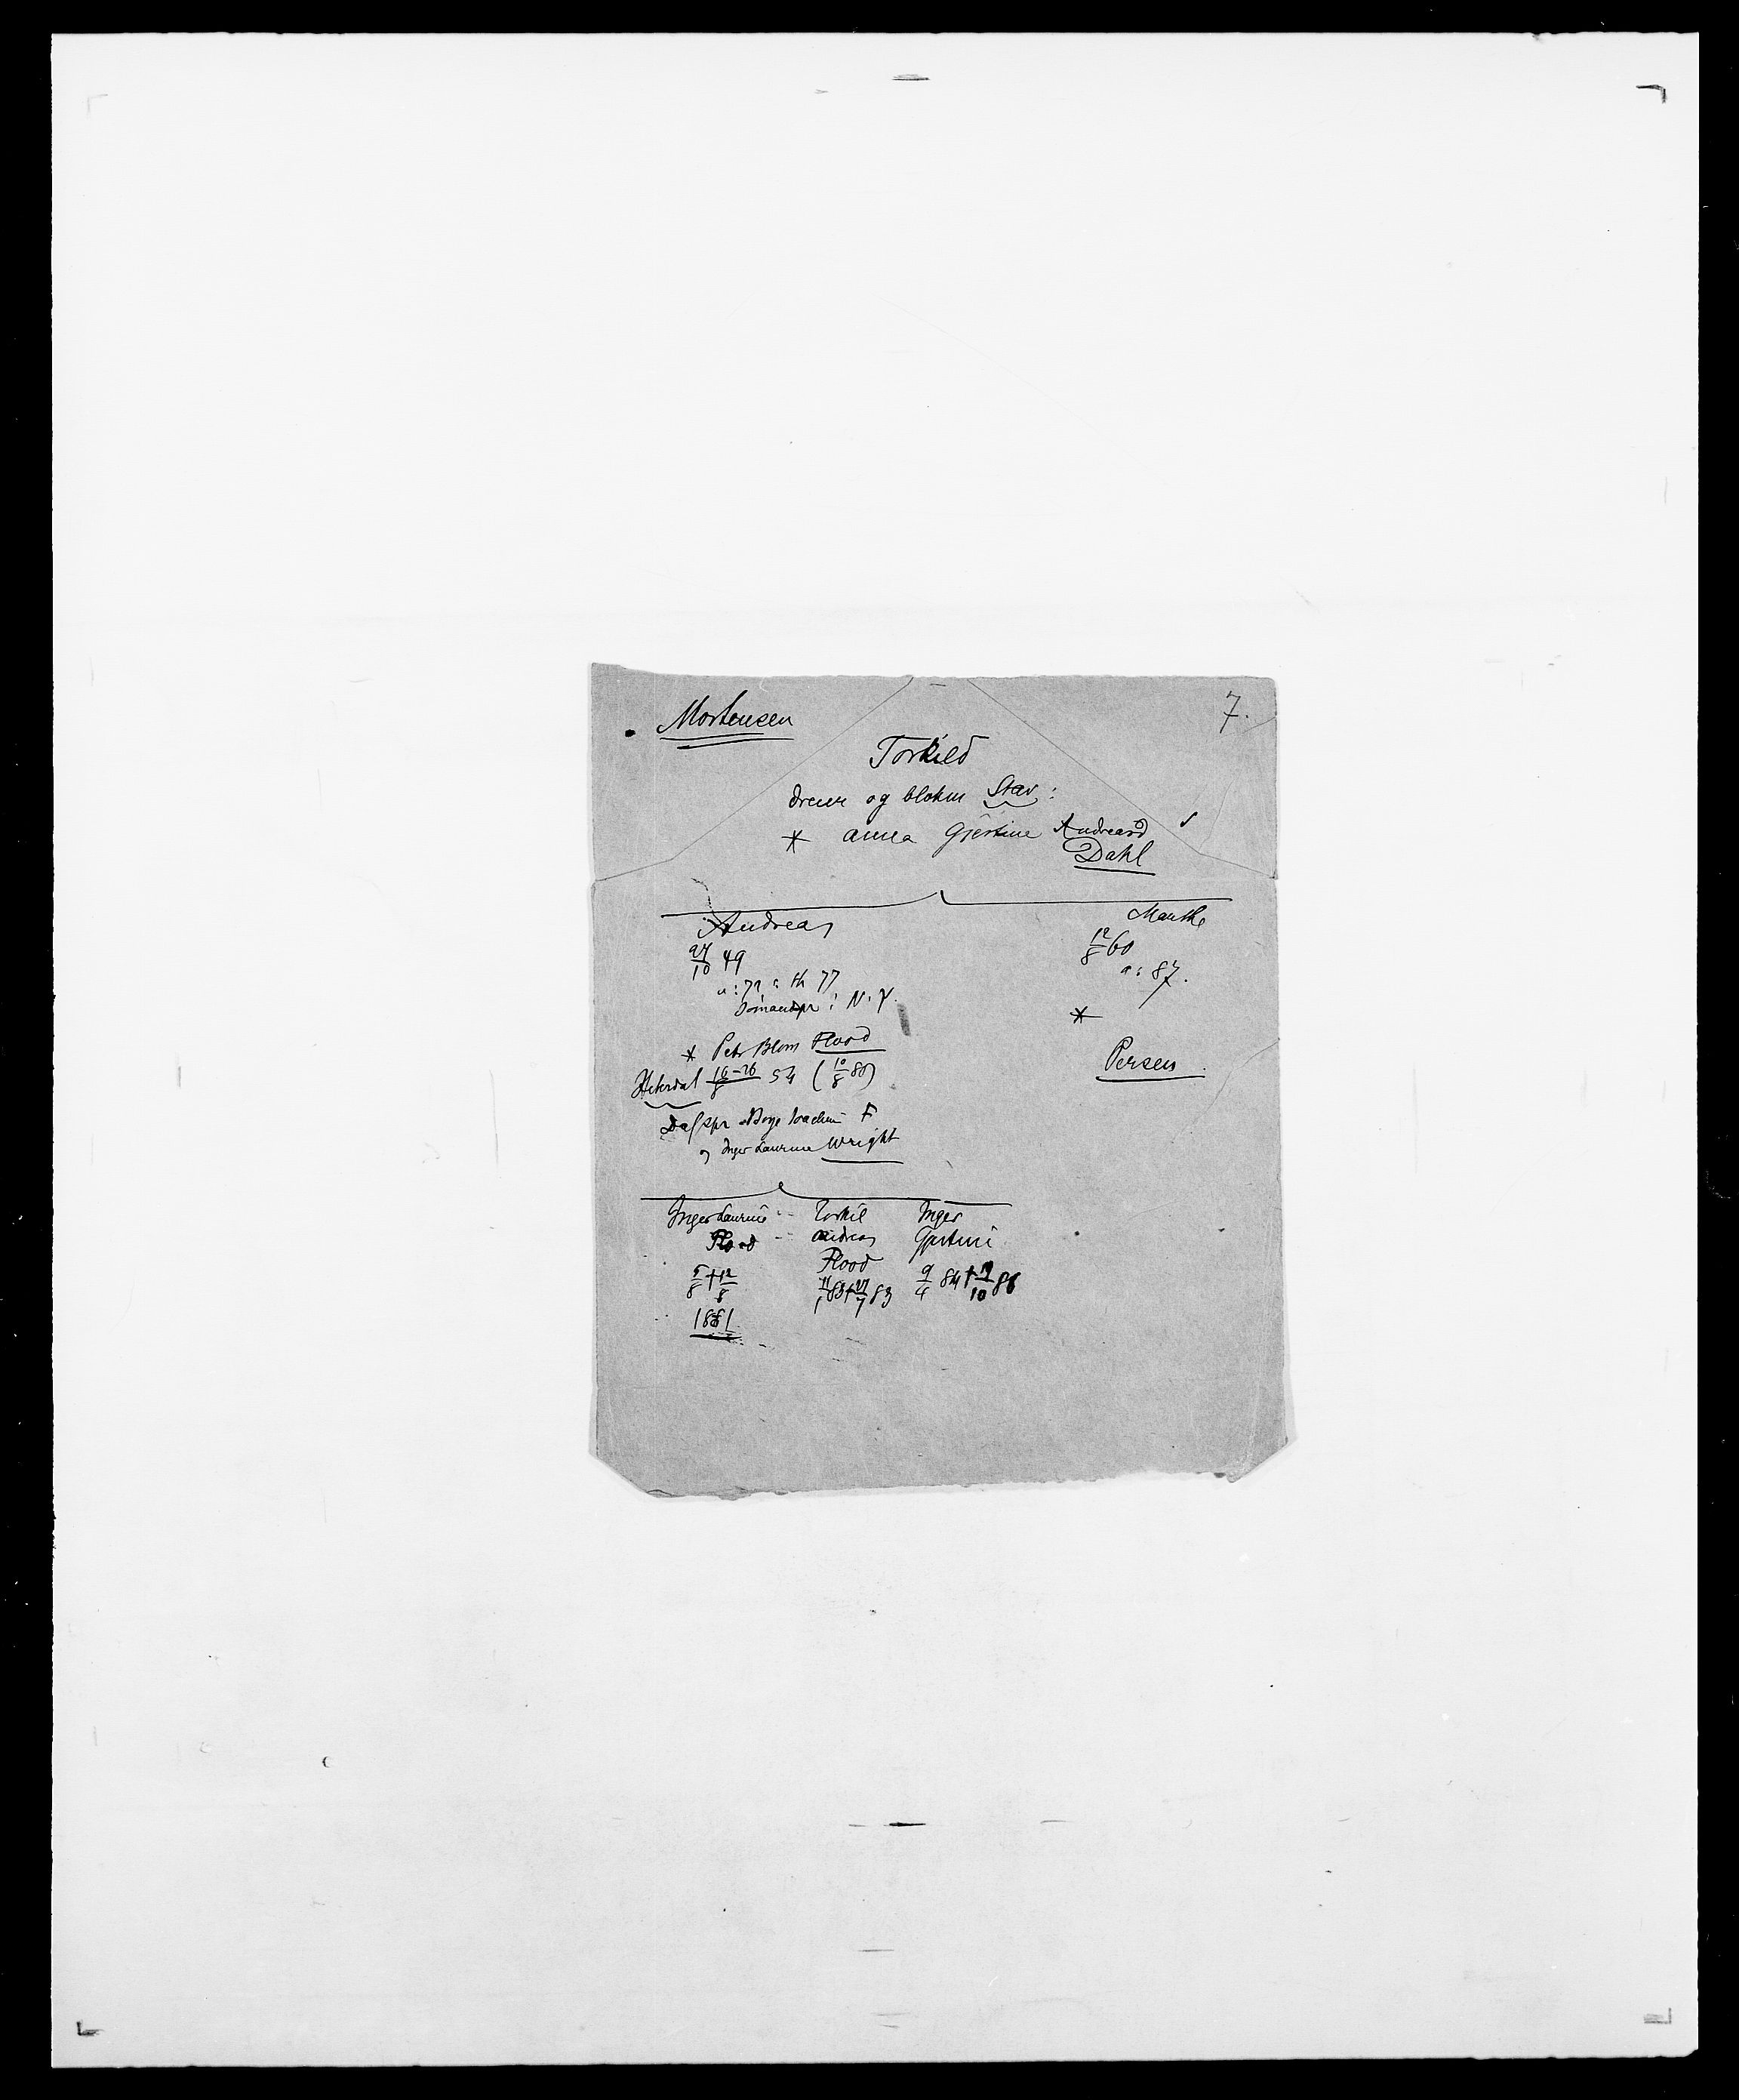 Mortensen
7.
Torkild
dreier og blokm Stav:
* Anna Gjertine Andreasd
Dahl
Andreas
27/10 49
a: 72 s: th 77
Sömandspr i N.Y.
* Petr Blom Flood
Hiterdal 16-26/8 54 (10/8 80)
Da/spr Boye Joachim F
og Inger Laurine Wright
Marthe
12/8 60
a: 87.
*
Persen
Inger Laurine
Flood
5/8 † 12/8
1881
Torkil
Andreas
Flood
11/1 83 † 27/7 83
Inger
Gjertine
9/4 84 † 19/10 86